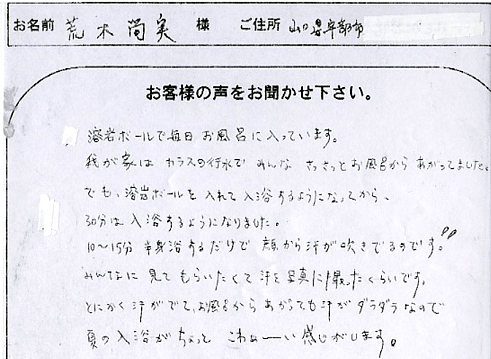 お名前 荒木尚実 様 ご住所 山口県宇部市
お客様の声をお聞かせ下さい。
溶岩ボールで毎日お風呂に入っています。
我が家はカラスの行水でみんなさっさとお風呂からあがってました。
でも、溶岩ボールを入れて入浴するようになってから、
30分は入浴するようになりました。
10〜15分半身浴するだけで顔から汗が吹きでるのです。!!
みんなに見てもらいたくて汗を写真に撮ったくらいです。
とにかく汗がでて、お風呂からあがっても汗がダラダラなので
夏の入浴がちょっとこわぁーい感じがします。